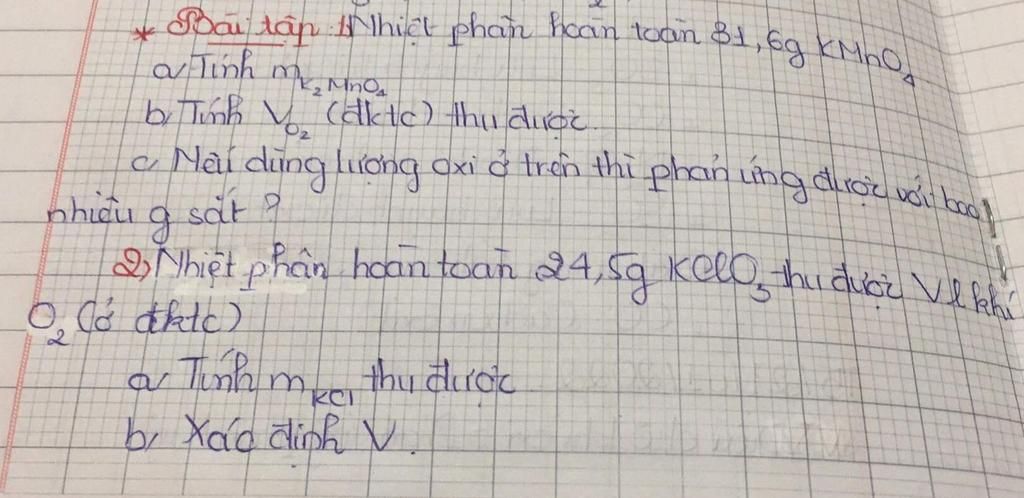 * Bài tập 1) Nhiệt phân hoàn toàn 31,6g KMnO4
a, Tính mK2MnO4
b, Tính VO2 (đktc) thu được.
c, Nếu dùng lượng oxi ở trên thì phản ứng được với bao
nhiêu g sắt?
2) Nhiệt phân hoàn toàn 24,5g KClO3 thu được V l khí
O2 (ở đktc)
a, Tính mKCl thu được
b, Xác định V.